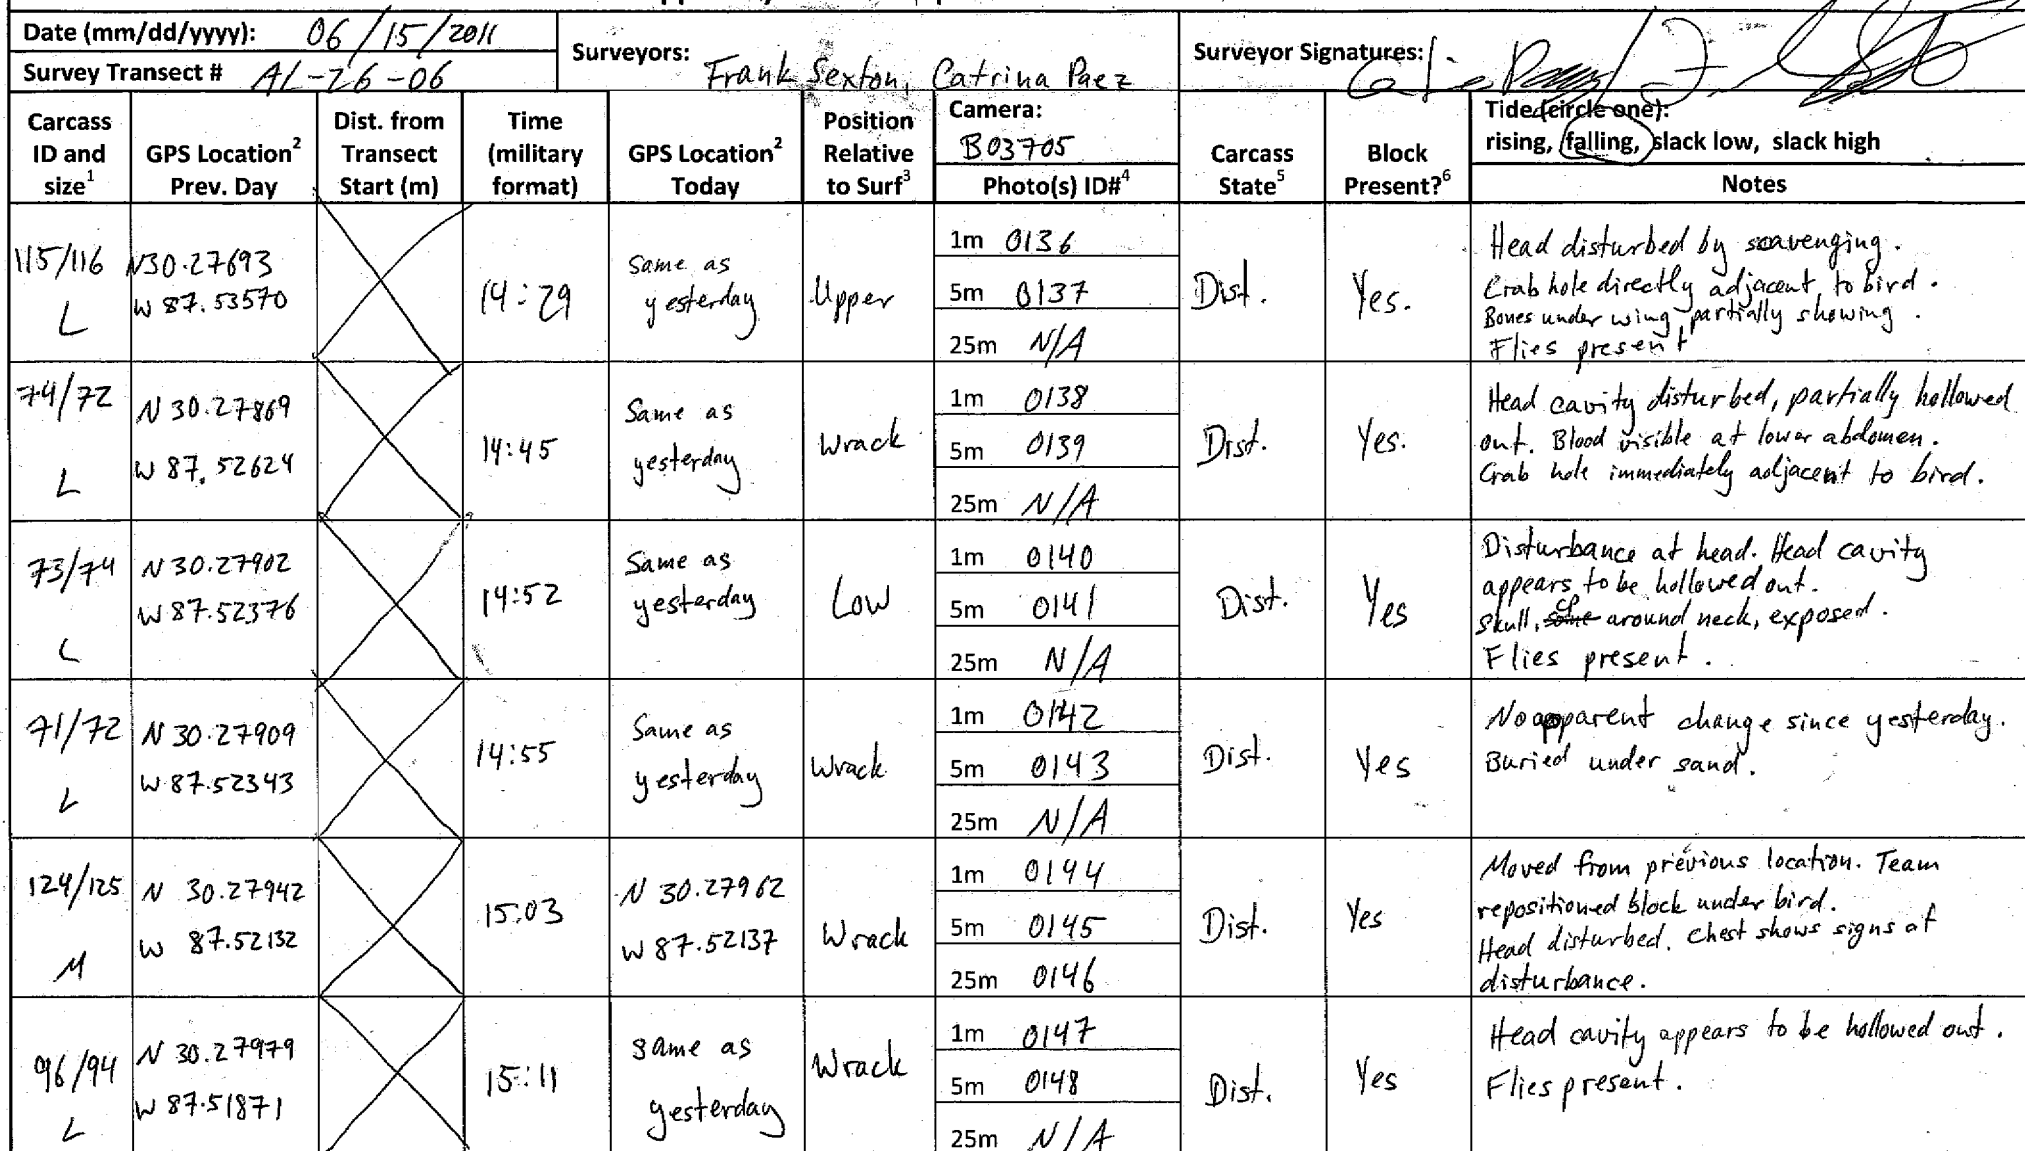 Date (mm/dd/yyyy): 06/15/2011
Survey Transect # AL-26-06
Surveyors: Frank Sexton, Catrina Paez
Surveyor Signatures:
Carcass ID and size1
GPS Location2 Prev. Day
Dist. from Transect Start (m)
Time (military format)
GPS Location2 Today
Position Relative to Surf3
Camera: B03705
Photo(s) ID#4
Carcass State5
Block Present?6
Tide (circle one):
rising, falling, slack low, slack high
Notes
115/116 L
N30.27693
W 87.53570
14:29
Same as
yesterday
Upper
1m 0136
5m 0137
25m N/A
Dist.
Yes.
Head disturbed by scavenging.
Crab hole directly adjacent to bird.
Bones under wing partially showing.
Flies present
74/72 L
N 30.27869
W 87.52624
14:45
Same as
yesterday
Wrack
1m 0138
5m 0139
25m N/A
Dist.
Yes.
Head cavity disturbed, partially hollowed
out. Blood visible at lower abdomen.
Crab hole immediately adjacent to bird.
73/74 L
N 30.27902
W 87.52376
14:52
Same as
yesterday
Low
1m 0140
5m 0141
25m N/A
Dist.
Yes
Disturbance at head. Head cavity
appears to be hollowed out.
Skull, around neck, exposed.
Flies present.
71/72 L
N 30.27909
W 87.52343
14:55
Same as
yesterday
Wrack
1m 0142
5m 0143
25m N/A
Dist.
Yes
No apparent change since yesterday.
Buried under sand.
124/125 M
N 30.27942
W 87.52132
15:03
N 30.27962
W 87.52137
Wrack
1m 0144
5m 0145
25m 0146
Dist.
Yes
Moved from previous location. Team
repositioned block under bird.
Head disturbed. Chest shows signs of
disturbance.
96/94 L
N 30.27979
W 87.51871
15:11
same as
yesterday
Wrack
1m 0147
5m 0148
25m N/A
Dist.
Yes
Head cavity appears to be hollowed out.
Flies present.